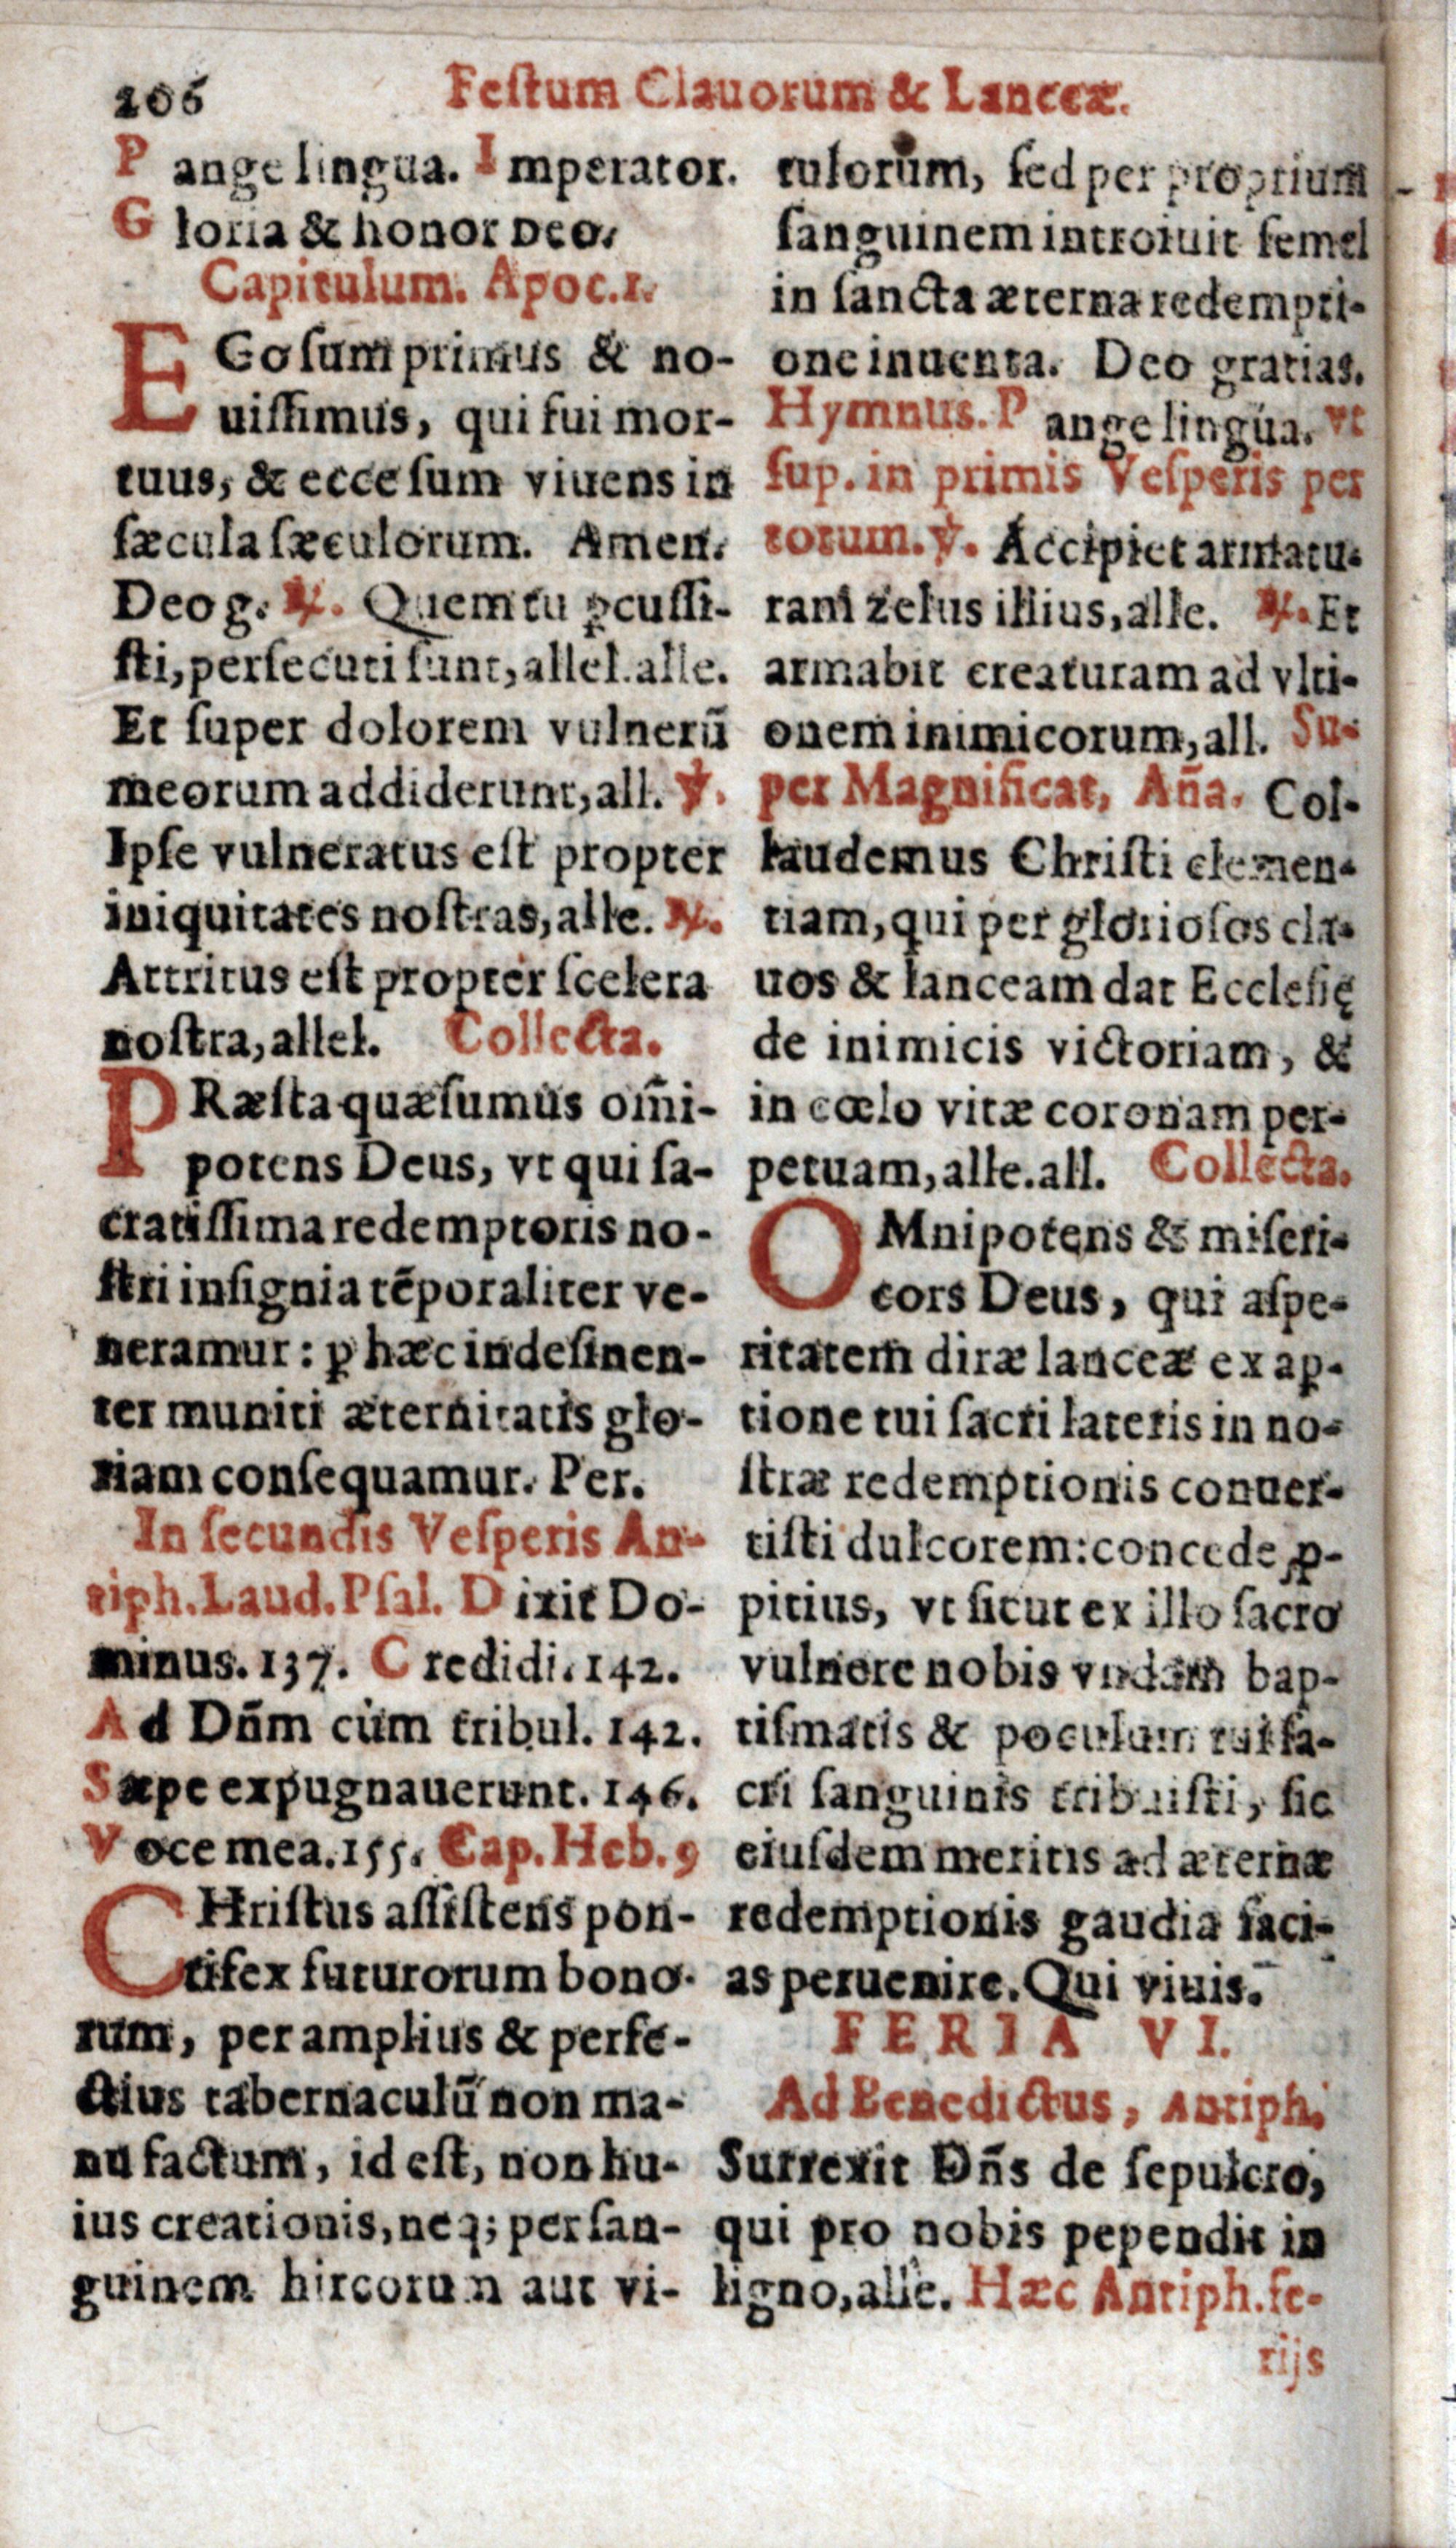 206
Festum Clauorum & Lanceæ.
Pange lingua. Imperator.
Gloria & honor Deo.
Capitulum. Apoc.1.
EGo sum primus & no-
uissimus, qui fui mor-
tuus, & ecce sum viuens in
sæcula sæculorum. Amen.
Deo g. ℟. Quem tu ꝑcussi-
sti, persecuti sunt, allel. alle.
Et super dolorem vulnerū
meorum addiderunt, all. ℣.
Ipse vulneratus est propter
iniquitates nostras, alle. ℟.
Attritus est propter scelera
nostra, allel. Collecta.
PRæsta quæsumus om̄i-
potens Deus, vt qui sa-
cratissima redemptoris no-
stri insignia tēporaliter ve-
neramur: ꝑ hæc indesinen-
ter muniti æternitatis glo-
riam consequamur. Per.
In secundis Vesperis An-
tiph. Laud. Psal. Dixit Do-
minus. 137. Credidi. 142.
Ad Dn̄m cùm tribul. 142.
Sæpe expugnauerunt. 146.
Voce mea. 155. Cap. Heb. 9
CHristus assistens pon-
tifex futurorum bono-
rum, per amplius & perfe-
ctius tabernaculū non ma-
nu factum, id est, non hu-
ius creationis, neq; per san-
guinem hircorum aut vi-
tulorum, sed per proprium
sanguinem introiuit semel
in sancta æterna redempti-
one inuenta. Deo gratias.
Hymnus. Pange lingua. vt
sup. in primis Vesperis per
totum. ℣. Accipiet armatu-
ram zelus illius, alle. ℟. Et
armabit creaturam ad vlti-
onem inimicorum, all. Su-
per Magnificat, Añа. Col-
laudemus Christi clemen-
tiam, qui per gloriosos cla-
uos & lanceam dat Ecclesię
de inimicis victoriam, &
in cœlo vitæ coronam per-
petuam, alle. all. Collecta.
OMnipotens & miseri-
cors Deus, qui aspe-
ritatem diræ lanceæ ex ap-
tione tui sacri lateris in no-
stræ redemptionis conuer-
tisti dulcorem: concede ꝓ-
pitius, vt sicut ex illo sacro
vulnere nobis vndam bap-
tismatis & poculum tui sa-
cri sanguinis tribuisti, sic
eiusdem meritis ad æternæ
redemptionis gaudia faci-
as peruenire. Qui viuis.
FERIA VI.
Ad Benedictus, Antiph.
Surrexit Dn̄s de sepulcro,
qui pro nobis pependit in
ligno, alle. Hæc Antiph. fe-
rijs